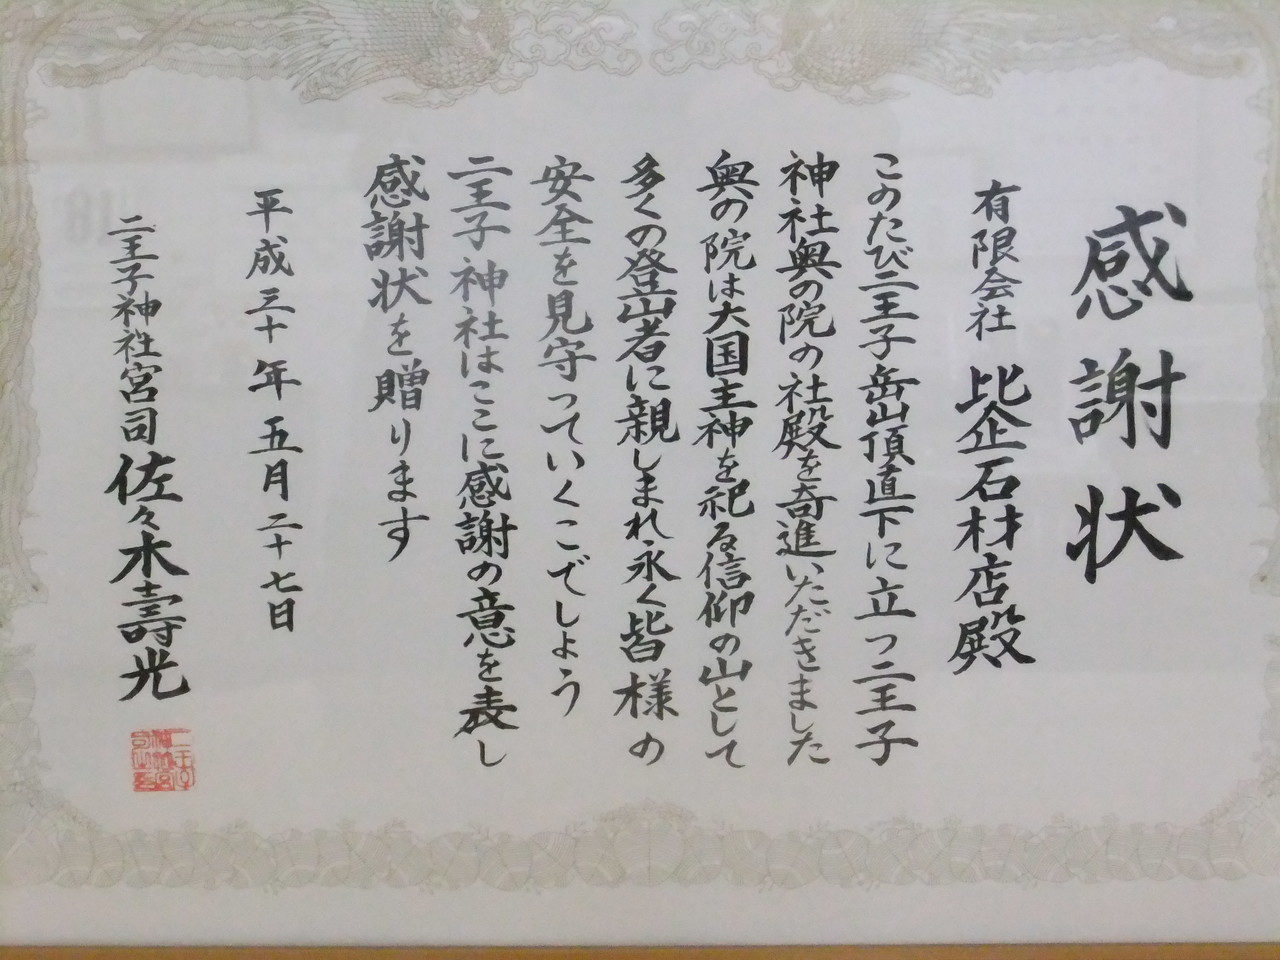 感謝状
有限会社 比企石材店殿
このたび二王子岳山頂直下に立つ二王子
神社奥の院の社殿を寄進いただきました
奥の院は大国主神を祀る信仰の山として
多くの登山者に親しまれ永く皆様の
安全を見守っていくことでしょう
二王子神社はここに感謝の意を表し
感謝状を贈ります
平成三十年五月二十七日
二王子神社宮司 佐々木壽光